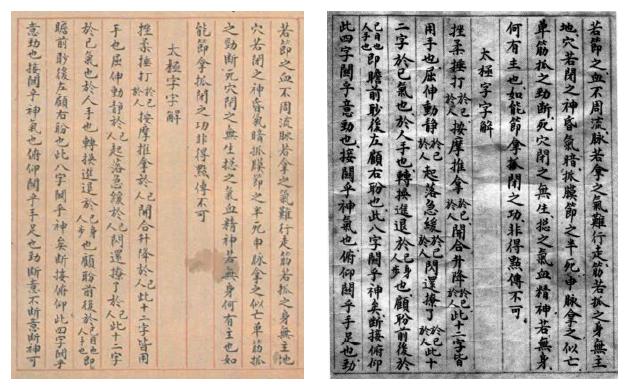 若節之血不周流脉若拿之氣難行走筋若抓之身無主地
穴若閉之神昏氣暗抓膜節之半死申脉拿之似亡單筋抓
之勁斷死穴閉之無生捴之氣血精神若無身何有主也如
能節拿抓閉之功非得點傳不可
太極字字解
挫柔捶打於己於人按摩推拿於己於人開合升降於己於人此十二字皆用
手也屈伸動靜於己於人起落急緩於己於人閃還撩了於己於人此十二字
於己氣也於人手也轉換進退於己身人步也顧盼前後於己目也人手也即
瞻前眇後左顧右盼也此八字關乎神矣斷接俯仰此四字關乎
意勁也接關乎神氣也俯仰關乎手足也勁斷意不斷意斷神可
若節之血不周流脉若拿之氣難行走筋若抓之身無主
地穴若閉之神昏氣暗抓膜節之半死申脉拿之似亡
單筋抓之勁斷死穴閉之無生捴之氣血精神若無身
何有主也如能節拿抓閉之功非得點傳不可
太極字字解
挫柔捶打於己於人按摩推拿於己於人開合升降於己於人此十二字皆
用手也屈伸動靜於己於人起落急緩於己於人閃還撩了於己於人此十
二字於己氣也於人手也轉換進退於己身人步也顧盼前後於
己目也人手也即瞻前眇後左顧右盼也此八字關乎神矣斷接俯仰
此四字關乎意勁也接關乎神氣也俯仰關乎手足也勁